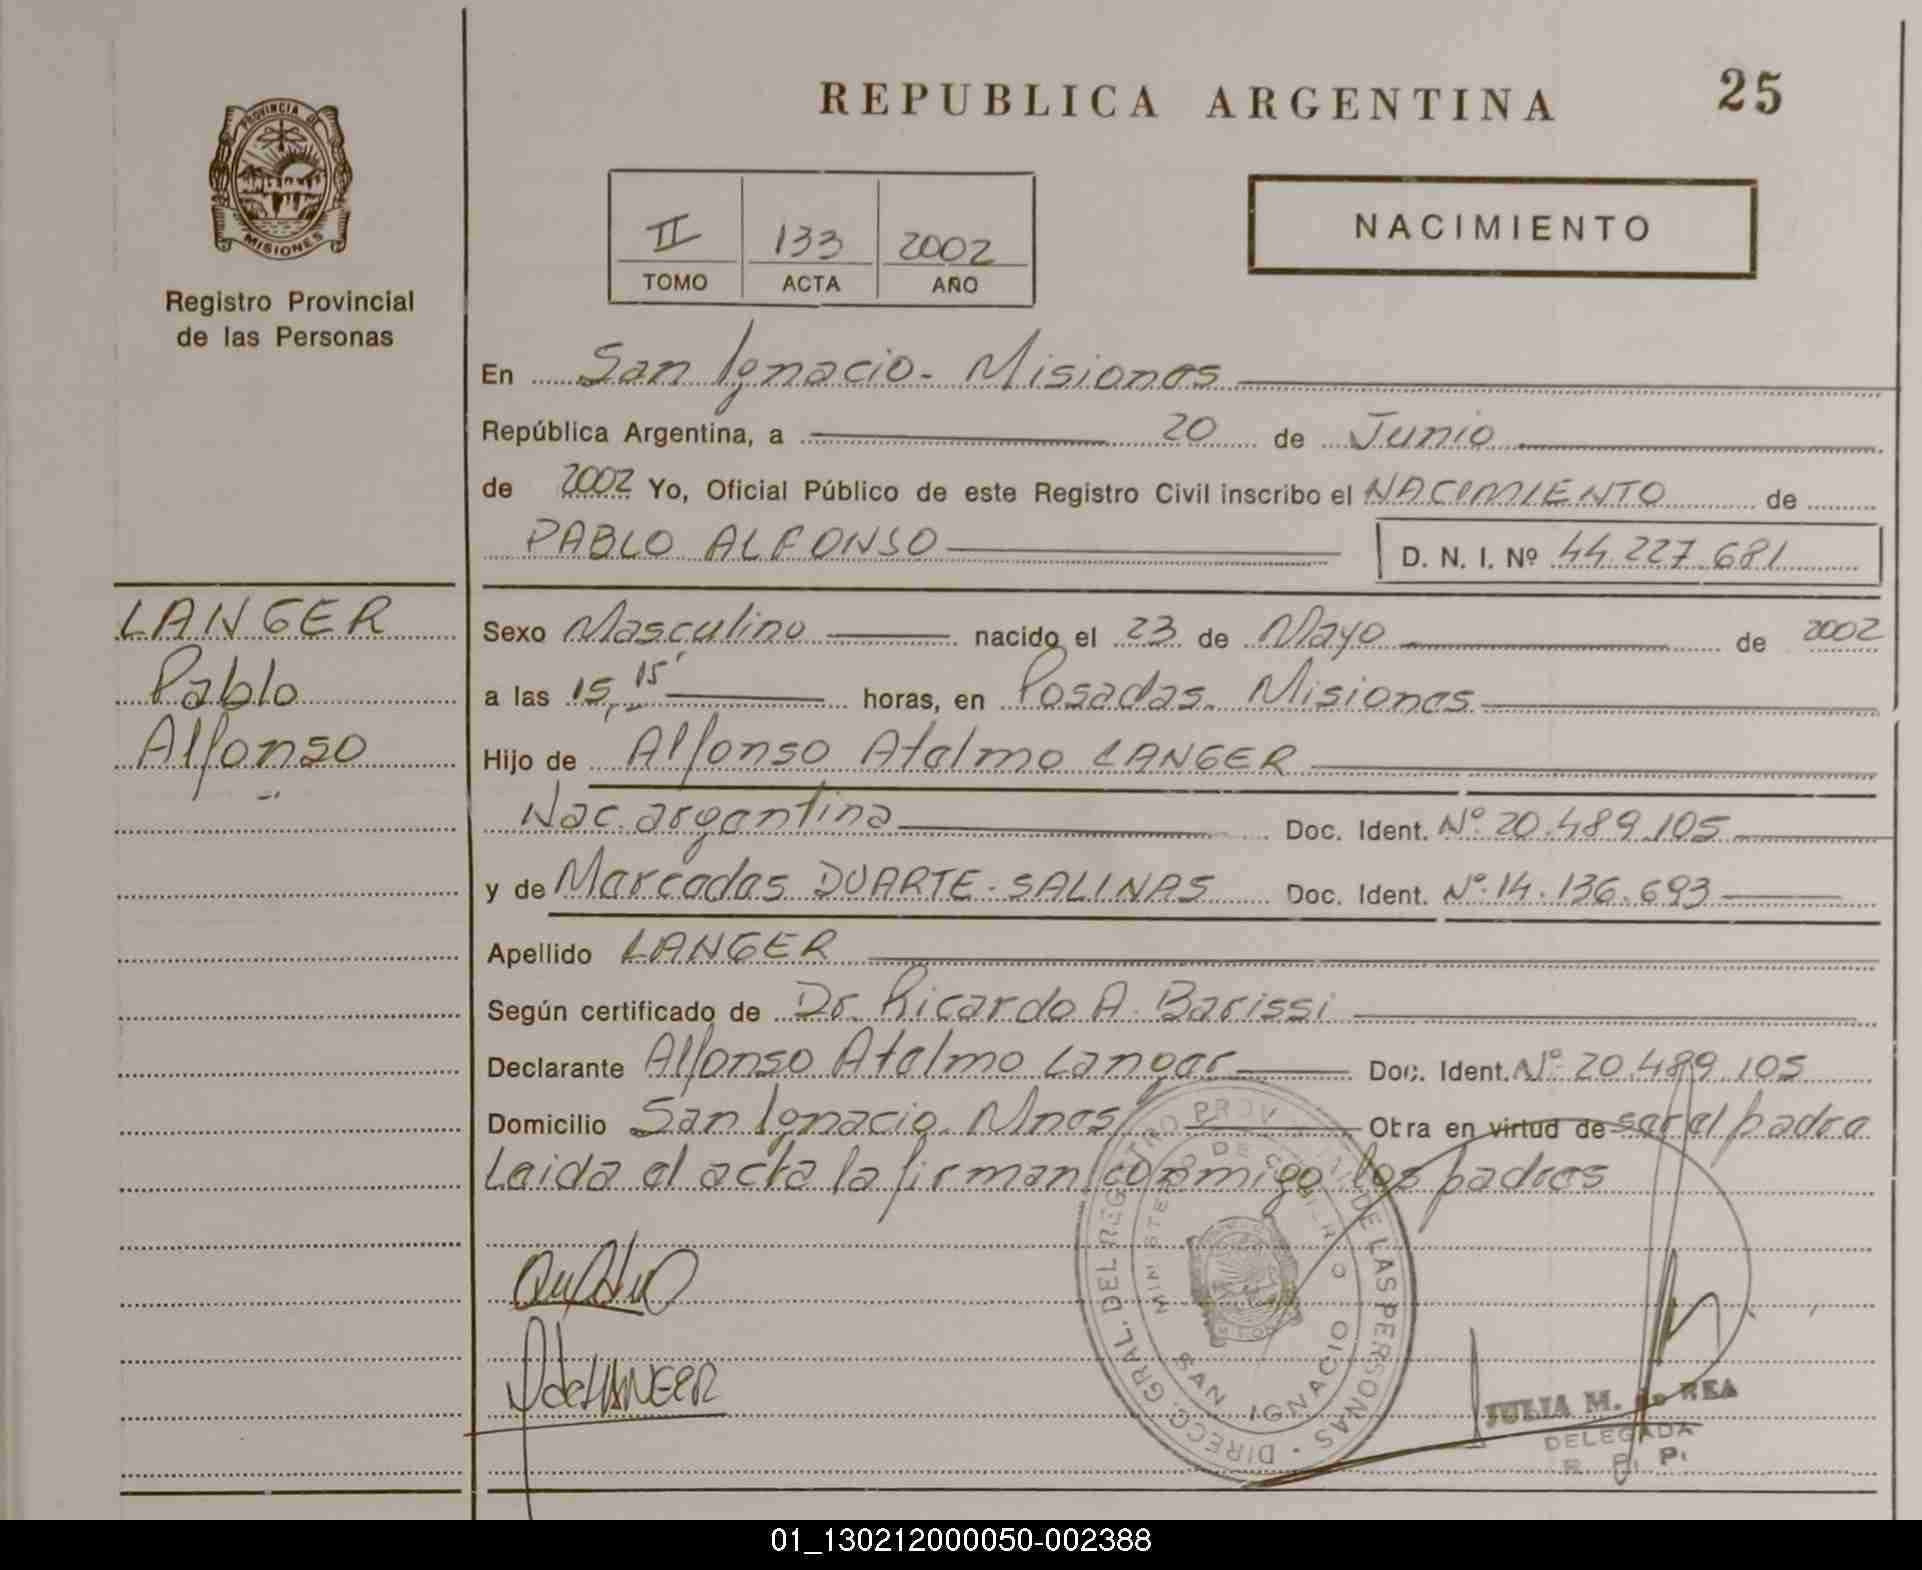 REPUBLICA ARGENTINA
25
PROVINCIA DE
MISIONES
Registro Provincial
de las Personas
II 133 2002
TOMO ACTA AÑO
NACIMIENTO
En San Ignacio - Misiones
República Argentina, a 20 de Junio
de 2002 Yo, Oficial Público de este Registro Civil inscribo el NACIMIENTO de
PABLO ALFONSO D. N. I. Nº 44.227.681
LANGER
Pablo
Alfonso
Sexo Masculino nacido el 23 de Mayo de 2002
a las 15,15' horas, en Posadas - Misiones
Hijo de Alfonso Atelmo LANGER
Nac. argentina Doc. Ident. Nº 20.489.105
y de Mercedes DUARTE - SALINAS Doc. Ident. Nº 14.136.693
Apellido LANGER
Según certificado de Dr. Ricardo A. Barissi
Declarante Alfonso Atelmo Langer Doc. Ident. Nº 20.489.105
Domicilio San Ignacio - Mnes Obra en virtud de ser el padre
Leida el acta la firman conmigo los padres
DIRECC. GRAL. DEL REGISTRO PROV. DE LAS PERSONAS
MINISTERIO DE GOBIERNO
SAN IGNACIO
de LANGER
JULIA M. de REA
DELEGADA
R. P. P.
01_130212000050-002388